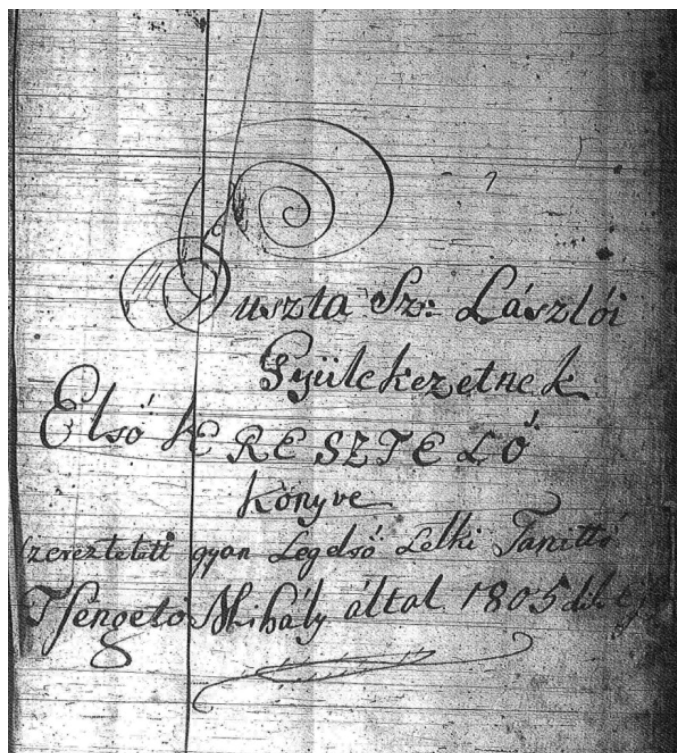 Puszta Sz: Lászlói
Gyülekezetnek
Első KERESZTELŐ
könyve
szereztetett ugyan Legelső Lelki Tanittó
Tsengető Mihály által 1805dik